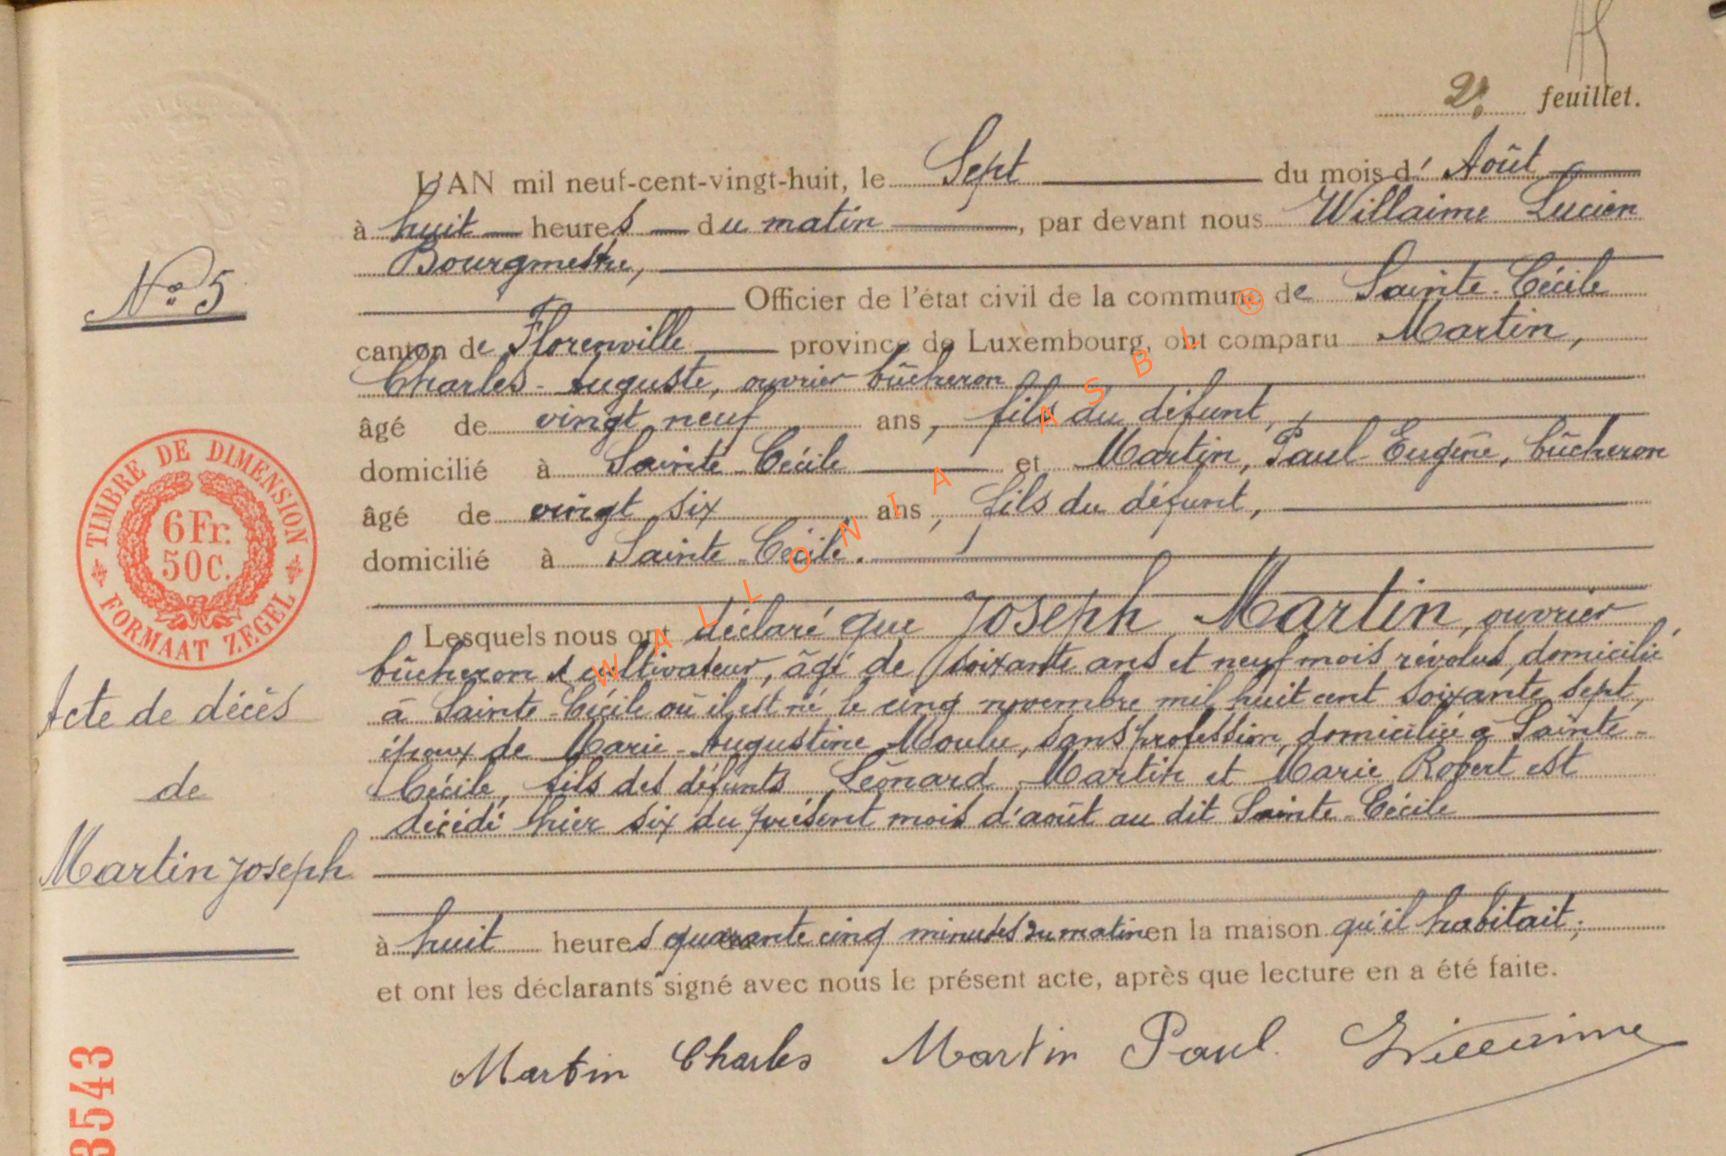 2e feuillet.
L'AN mil neuf-cent-vingt-huit, le Sept du mois d' Août
à huit heures du matin, par devant nous Willaime Lucien
Bourgmestre,
Officier de l'état civil de la commune de Sainte-Cécile
canton de Florenville province de Luxembourg, ont comparu Martin,
Charles-Auguste, ouvrier bûcheron
âgé de vingt neuf ans, fils du défunt,
domicilié à Sainte-Cécile et Martin, Paul-Eugène, bûcheron
âgé de vingt six ans, fils du défunt,
domicilié à Sainte-Cécile.
Lesquels nous ont déclaré que Joseph Martin, ouvrier
bûcheron & cultivateur, âgé de soixante ans et neuf mois révolus, domicilié
à Sainte-Cécile où il est né le cinq novembre mil huit cent soixante sept,
époux de Marie-Augustine Moulu, sans profession, domiciliée à Sainte-
Cécile, fils des défunts Léonard Martin et Marie Robert est
décédé hier six du présent mois d'août au dit Sainte-Cécile
à huit heures quarante cinq minutes du matin en la maison qu'il habitait;
et ont les déclarants signé avec nous le présent acte, après que lecture en a été faite.
Martin Charles Martin Paul. Willaime
No 5
TIMBRE DE DIMENSION
6Fr.
50C.
FORMAAT ZEGEL
Acte de décès
de
Martin Joseph
3543
WALLONIA ASBL ®